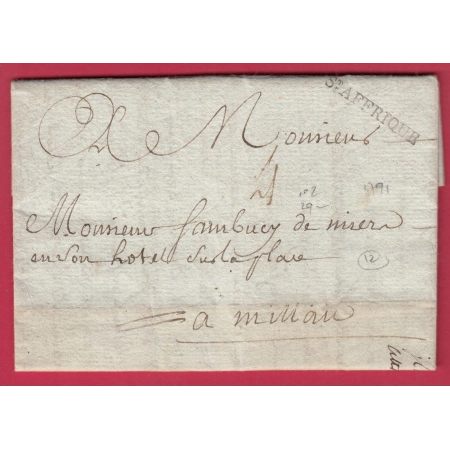 St AFFRIQUE
A Monsieur
4
n°2
29-
1791
Monsieur Sambucy de miers
en Son hotel Sur la place
12
a millau